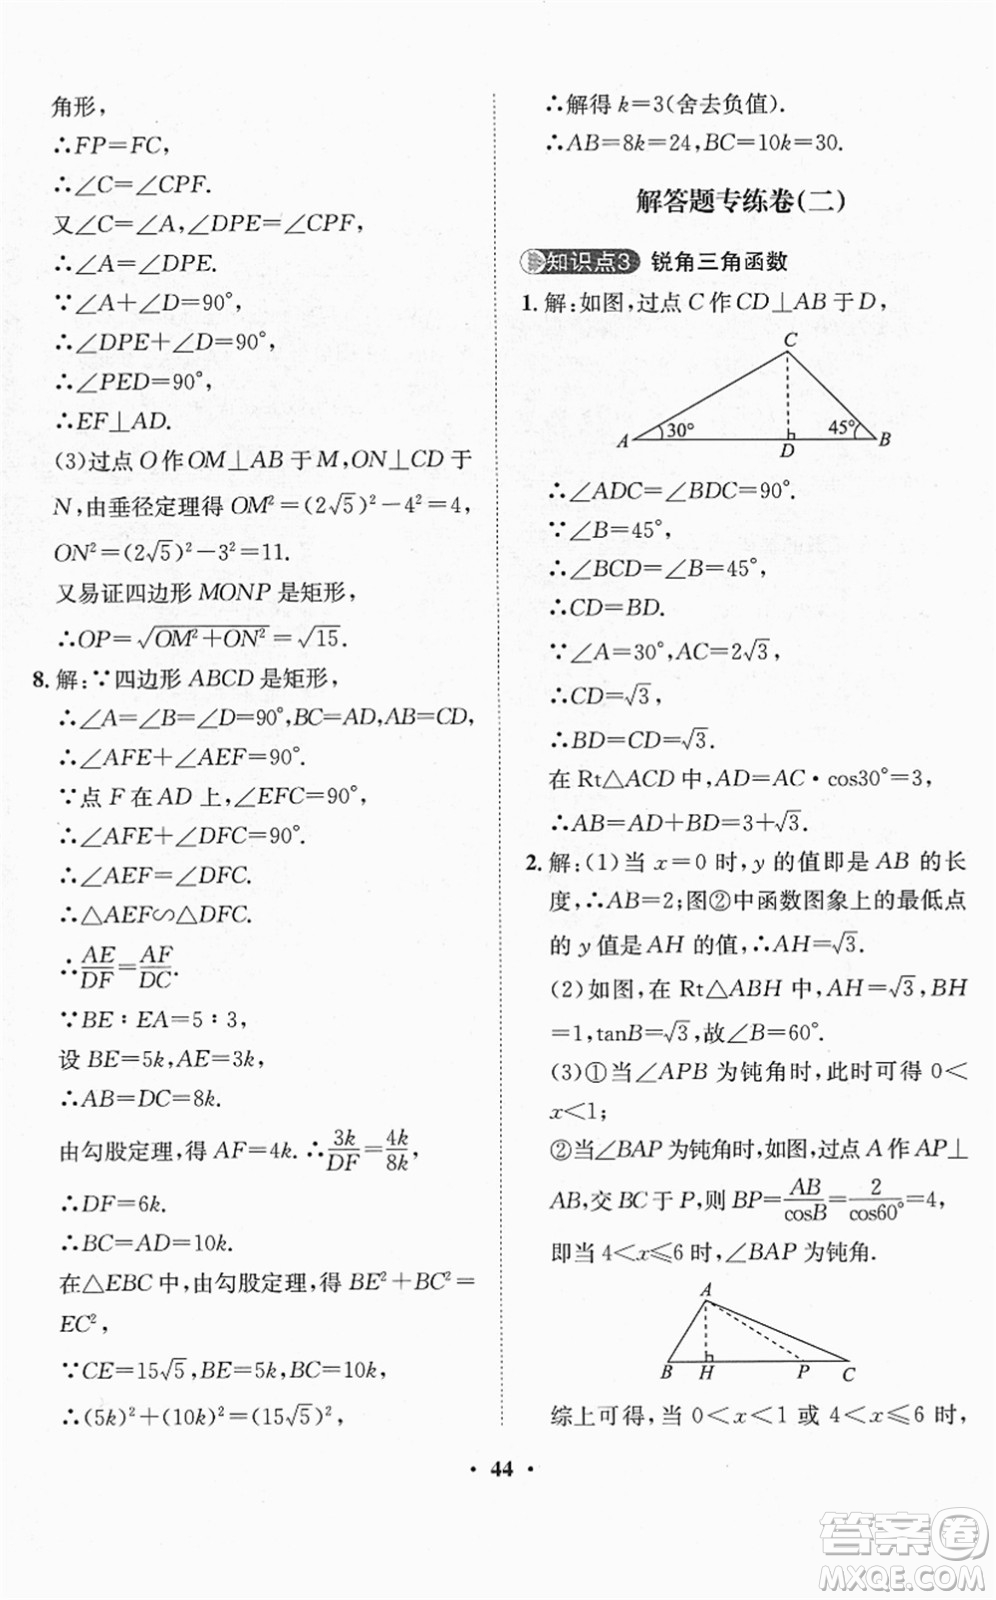 角形，
∴FP=FC，
∴∠C=∠CPF.
又∠C=∠A，∠DPE=∠CPF，
∴∠A=∠DPE.
∵∠A+∠D=90°，
∴∠DPE+∠D=90°，
∴∠PED=90°，
∴EF⊥AD.
(3)过点 O 作 OM⊥AB 于 M，ON⊥CD 于
N，由垂径定理得 OM²=(2√5)²-4²=4，
ON²=(2√5)²-3²=11.
又易证四边形 MONP 是矩形，
∴OP=√(OM²+ON²)=√15.
8. 解：∵四边形 ABCD 是矩形，
∴∠A=∠B=∠D=90°，BC=AD，AB=CD，
∴∠AFE+∠AEF=90°.
∵点 F 在 AD 上，∠EFC=90°，
∴∠AFE+∠DFC=90°.
∴∠AEF=∠DFC.
∴△AEF∽△DFC.
∴AE/DF=AF/DC.
∵BE∶EA=5∶3，
设 BE=5k，AE=3k，
∴AB=DC=8k.
由勾股定理，得 AF=4k. ∴3k/DF=4k/8k，
∴DF=6k.
∴BC=AD=10k.
在△EBC 中，由勾股定理，得 BE²+BC²=
EC²，
∵CE=15√5，BE=5k，BC=10k，
∴(5k)²+(10k)²=(15√5)²，
∴解得 k=3(舍去负值).
∴AB=8k=24，BC=10k=30.
解答题专练卷(二)
知识点3 锐角三角函数
1. 解：如图，过点 C 作 CD⊥AB 于 D，
C
A 30° D 45° B
∴∠ADC=∠BDC=90°.
∵∠B=45°，
∴∠BCD=∠B=45°，
∴CD=BD.
∵∠A=30°，AC=2√3，
∴CD=√3，
∴BD=CD=√3.
在 Rt△ACD 中，AD=AC·cos30°=3，
∴AB=AD+BD=3+√3.
2. 解：(1)当 x=0 时，y 的值即是 AB 的长
度，∴AB=2；图②中函数图象上的最低点
的 y 值是 AH 的值，∴AH=√3.
(2)如图，在 Rt△ABH 中，AH=√3，BH
=1，tanB=√3，故∠B=60°.
(3)①当∠APB 为钝角时，此时可得 0<
x<1；
②当∠BAP 为钝角时，如图，过点 A 作 AP⊥
AB，交 BC 于 P，则 BP=AB/cosB=2/cos60°=4，
即当 4<x≤6 时，∠BAP 为钝角.
A
B H P C
综上可得，当 0<x<1 或 4<x≤6 时，
· 44 ·
答案卷
MXQE.COM